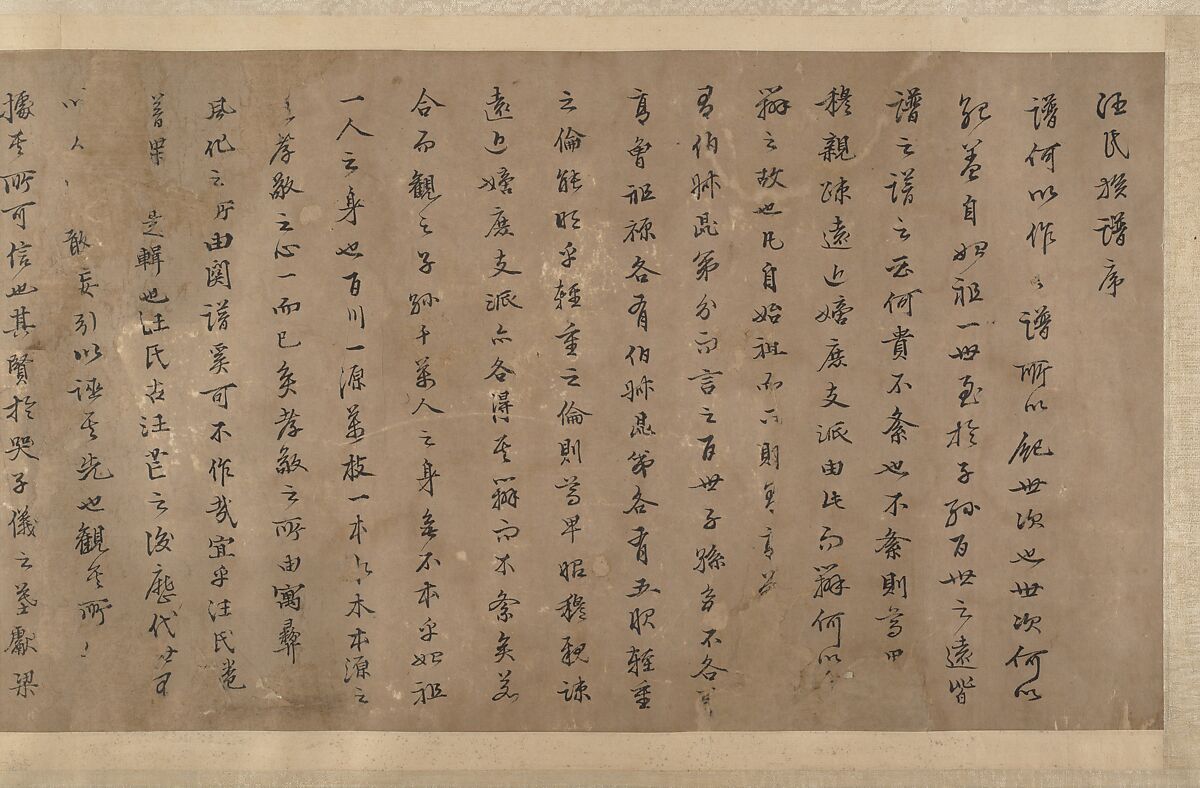 汪氏族譜序
譜何以作々譜所以紀世次也世次何以
紀蓋自始祖一世至於子孫百世之遠皆
譜之譜之云何貴不紊也不紊則尊卑
穆親疎遠近嫡庶支派由此而辯何以
辯之故也凡自始祖而下則有高曽
有伯叔昆弟分而言之百世子孫多不各有
高曾祖祢各有伯叔昆弟各有五服輕重
之倫能明乎輕重之倫則尊卑昭穆親疎
遠近嫡庶支派亦各得其辯而不紊矣若
合而観之子孫千萬人之身無不本乎始祖
一人之身也百川一源萬枝一本水木本源之
孝敬之心一而已矣孝敬之所由寓彝
風化之所由関譜奚可不作哉宜乎汪氏
是輯也汪氏古汪芒之後歷代
以人敢妄引以誣其先也観其所
據其所可信也其賢於哭子儀之墓獻梁